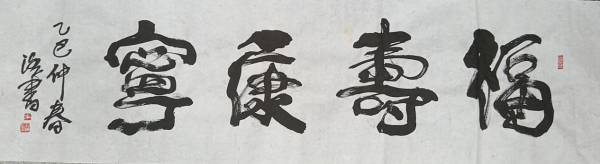 福壽康寧
乙巳仲春
浩書